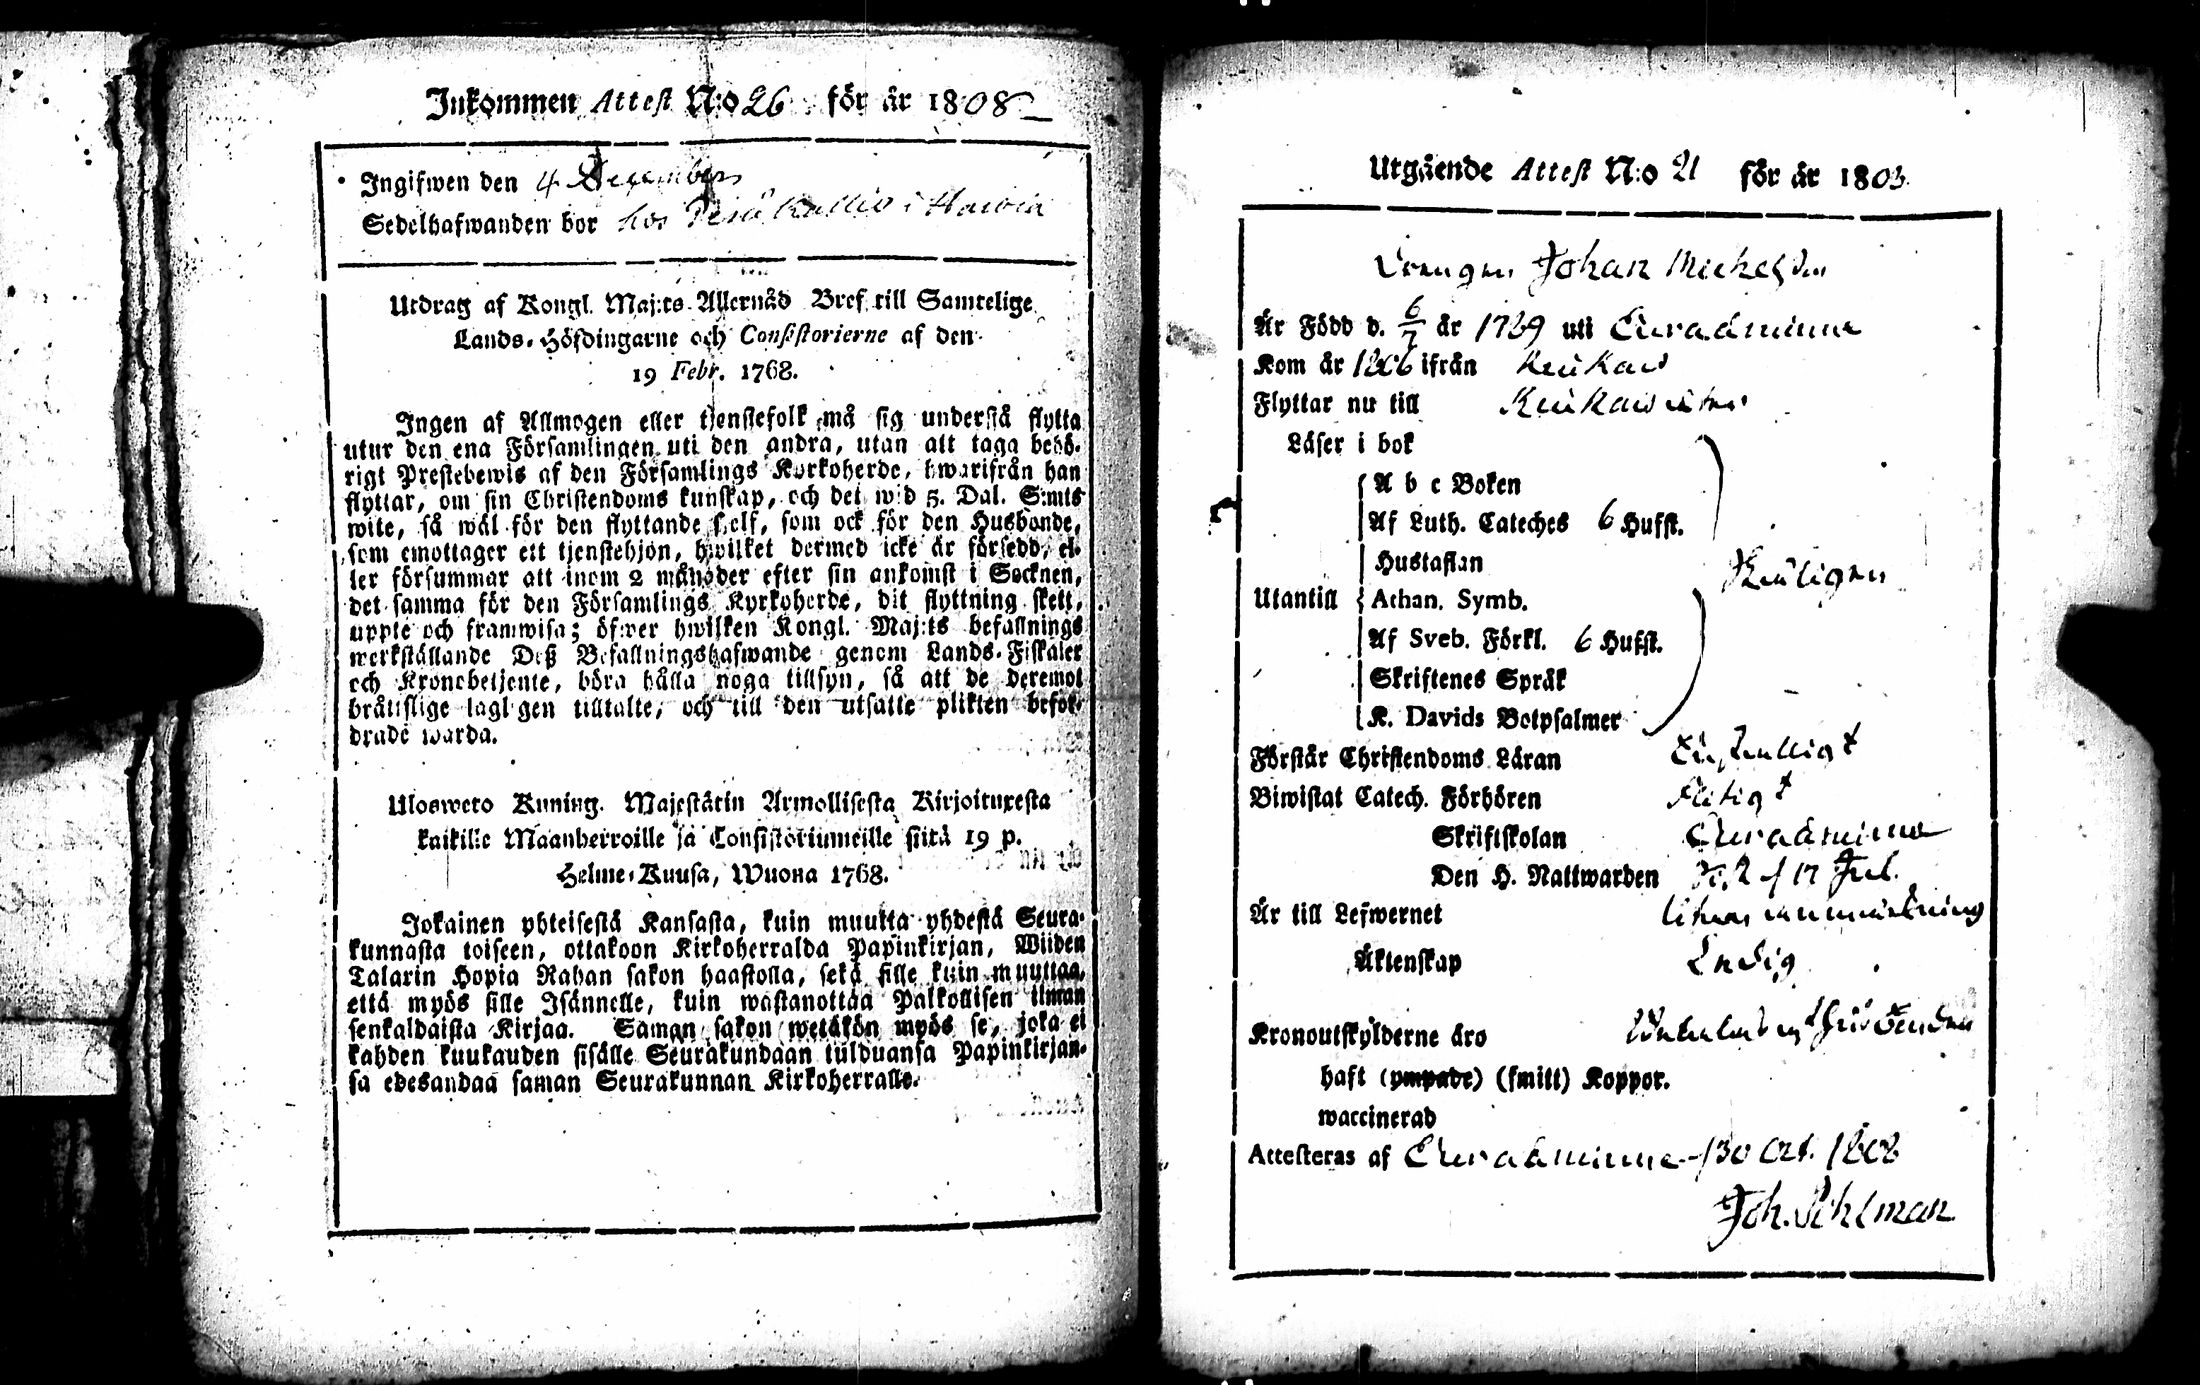 Inkommen Attest N:o 26 för år 1808
Ingifwen den 4 December
Sedelhafwanden bor hos i
Utdrag af Kongl. Maj:ts Allernåd Bref till Samtelige
Lands-Höfdingarne och Consistorierne af den
19 Febr. 1768.
Ingen af Allmogen eller tjenstefolk må sig understå flytta
utur den ena Församlingen uti den andra, utan att taga behö-
rigt Prestebewis af den Församlings Kyrkoherde, hwarifrån han
flyttar, om sin Christendoms kunskap, och det wid 5. Dal. S:mts
wite, så wäl för den flyttande sjelf, som ock för den Husbonde,
som emottager ett tjenstehjon, hwilket dermed icke är försedd, el-
ler försummar att inom 2 månader efter sin ankomst i Socknen,
det samma för den Församlings Kyrkoherde, dit flyttning skett,
uppte och framwisa; öfwer hwilken Kongl. Maj:ts befallnings
werkställande Deß Befallningshafwande genom Lands-Fiskaler
och Kronobetjente, böra hålla noga tillsyn, så att de deremot
bråttslige lagligen tilltalte, och till den utsatte plikten befor-
drade warda.
Ulosweto Kuning. Majestätin Armollisesta Kirjoituxesta
kaikille Maanherroille ja Consistoriumeille siitä 19 p.
Helme-Kuusa, Wuona 1768.
Jokainen yhteisestä Kansasta, kuin muutta yhdestä Seura-
kunnasta toiseen, ottakoon Kirkoherralda Papinkirjan, Wiiden
Talarin Hopia Rahan sakon haastolla, sekä sille kuin muuttaa,
että myös sille Isännelle, kuin wastanottaa Palkollisen ilman
senkaldaista Kirjaa. Saman sakon wetäkön myös se, joka ei
kahden kuukauden sisälle Seurakundaan tulduansa Papinkirjan-
sa edesandaa saman Seurakunnan Kirkoherralle.
Utgående Attest N:o 21 för år 1803
Drengen Johan Michelsson
Är Född d. 6/7 år 1789 uti Euraåminne
Kom år 1806 ifrån Keukais
Flyttar nu till
Läser i bok
A b c Boken
Af Luth. Cateches 6 Hufst.
Hustaflan
Utantill Athan. Symb.
Af Sveb. Förkl. 6 Hufst.
Skriftenes Språk
K. Davids Botpsalmer
Förstår Christendoms Läran
Biwistat Catech. Förhören Flitigt
Skriftskolan Euraåminne
Den H. Nattwarden d 17 Jul.
Är till Lefwernet utan anmärkning
Äktenskap Ledig
Kronoutskylderne äro
haft (ympade) (smitt) Koppor.
waccinerad
Attesteras af Euraåminne d 30 Oct. 1808
Joh.